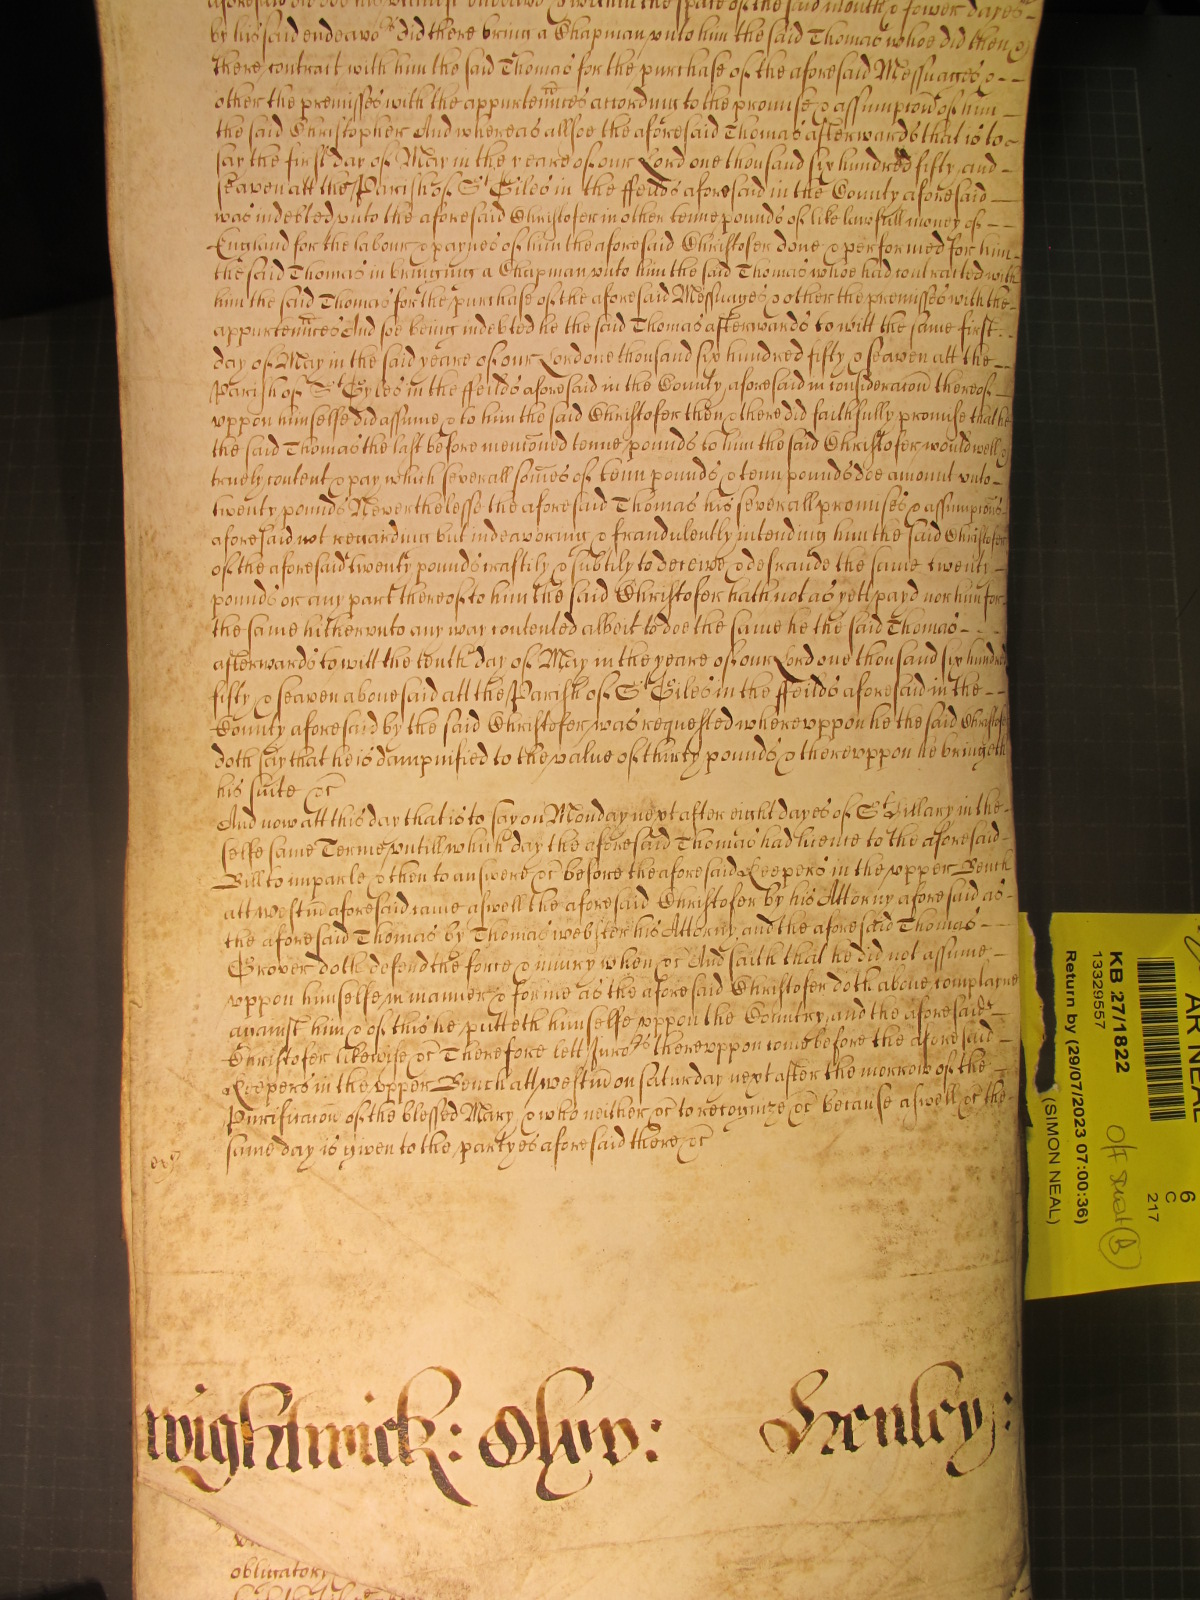 aforesaid did doe his utmost endeavor & within the space of the said month & fower dayes
by his said endeavor did there bring a Chapman unto him the said Thomas whoe did then &
there contract with him the said Thomas for the purchase of the aforesaid Messuages &
other the premisses with the appurtennces according to the promise & assumption of him
the said Christopher And whereas allsoe the aforesaid Thomas afterwards that is to
say the first day of May in the yeare of our Lord one thousand six hundred fifty and
seaven att the Parish of St Giles in the ffeilds aforesaid in the County aforesaid
was indebted unto the aforesaid Christofer in other tenne pounds of like lawfull money of
England for the labour & paynes of him the aforesaid Christofer done & performed for him
the said Thomas in bringing a Chapman unto him the said Thomas whoe had contracted with
him the said Thomas for the purchase of the aforesaid Messuages & other the premisses with the
appurtennces And soe being indebted he the said Thomas afterwards to witt the same first
day of May in the said yeare of our Lord one thousand six hundred fifty & seaven att the
Parish of St Gyles in the ffeilds aforesaid in the County aforesaid in consideracon thereof
uppon himselfe did assume & to him the said Christofer then & there did faithfully promise that he
the said Thomas the last before menconed tenne pounds to him the said Christofer would well &
truely content & pay which severall somes of tenn pounds & tenn pounds doe amount unto
twenty pounds Neverthelesse the aforesaid Thomas his severall promises & assumpcons
aforesaid not regarding but indeavoring & fraudulently intending him the said Christofer
of the aforesaid twenty pounds craftily & subtily to deceive & defraude the same twenty
pounds or any part thereof to him the said Christofer hath not as yett payd nor him for
the same hitherunto any way contented albeit to doe the same he the said Thomas
afterwards to witt the tenth day of May in the yeare of our Lord one thousand six hundred
fifty & seaven abovesaid att the Parish of St Giles in the ffeilds aforesaid in the
County aforesaid by the said Christofer was requested whereuppon he the said Christofer
doth say that he is dampnified to the value of thirty pounds & thereuppon he bringeth
his suite &c
And now att this day that is to say on Monday next after eight dayes of St Hillary in the
selfe same Terme untill which day the aforesaid Thomas had licence to the aforesaid
Bill to imparle & then to answere &c before the aforesaid Keepers in the upper Bench
att westm aforesaid came aswell the aforesaid Christofer by his Attorny aforesaid as
the aforesaid Thomas by Thomas webster his Attorny and the aforesaid Thomas
Grover doth defend the force & injury when &c And saith that he did not assume
uppon himselfe in manner & forme as the aforesaid Christofer doth above complayne
against him & of this he putteth himselfe uppon the Country and the aforesaid
Christofer likewise &c Therefore lett Jurors thereuppon come before the aforesaid
Keepers in the upper Bench att westm on saturday next after the morrow of the
Purificacon of the blessed Mary & who neither &c to recognize &c because aswell &c the
same day is given to the partyes aforesaid there &c
wightwick: Oxon: Henley:
obligatory
KB 27/1822
13329557
Return by (29/07/2023 07:00:36)
(SIMON NEAL)
6
C
217